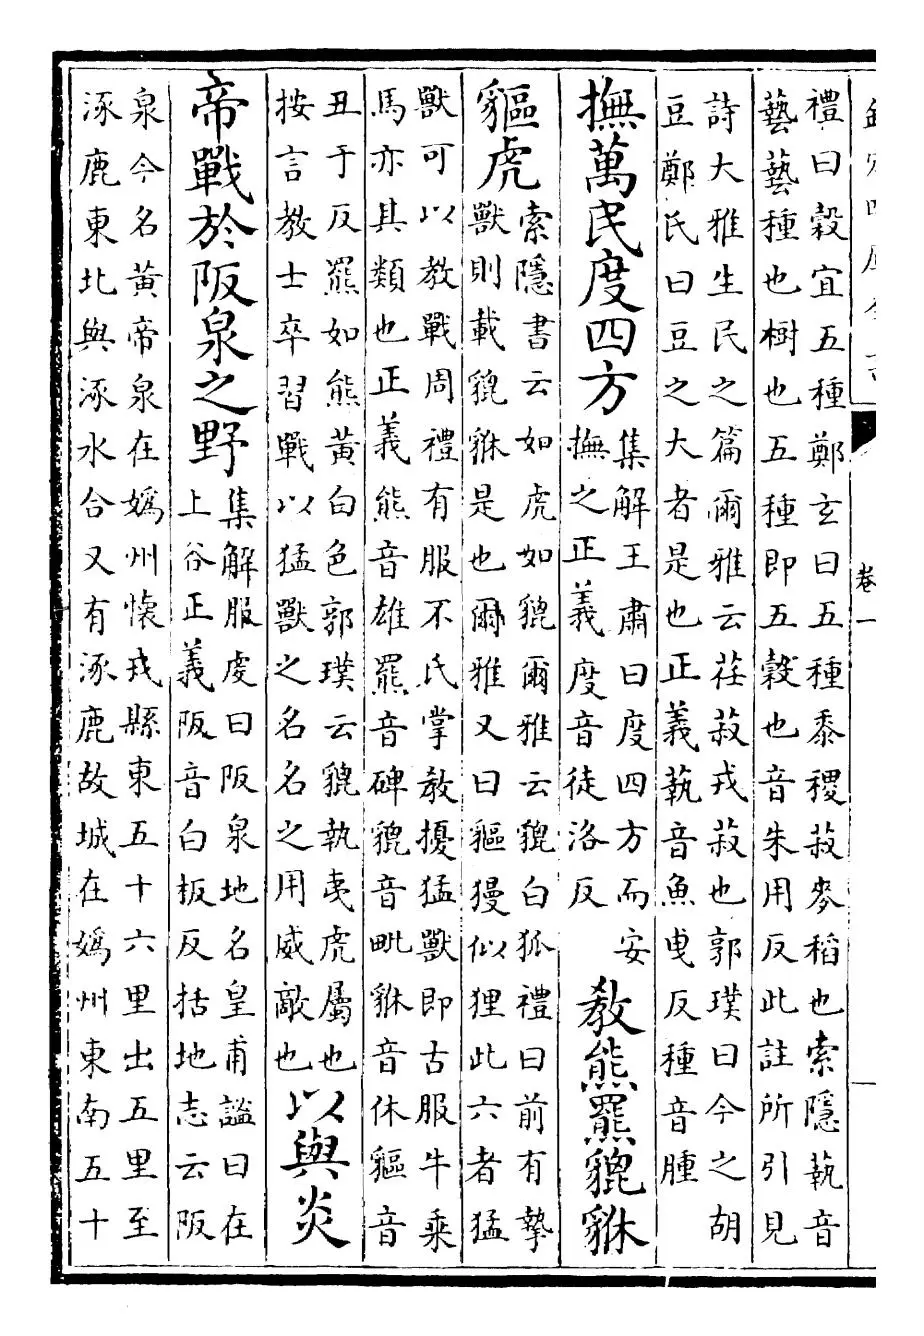 卷一
禮曰穀宜五種鄭玄曰五種黍稷菽麥稻也索隱蓺音
藝藝種也樹也五種即五穀也音朱用反此註所引見
詩大雅生民之篇爾雅云荏菽戎菽也郭璞曰今之胡
豆鄭氏曰豆之大者是也正義蓺音魚曵反種音腫
撫萬民度四方
集解王肅曰度四方而安
撫之正義度音徒洛反
敎熊羆貔貅
貙虎
索隱書云如虎如貔爾雅云貔白狐禮曰前有摯
獸則載貔貅是也爾雅又曰貙獌似狸此六者猛
獸可以教戰周禮有服不氏掌敎擾猛獸即古服牛乘
馬亦其類也正義熊音雄羆音碑貔音毗貅音休貙音
丑于反羆如熊黃白色郭璞云貔執夷虎屬也
按言教士卒習戰以猛獸之名名之用威敵也
以與炎
帝戰於阪泉之野
集解服虔曰阪泉地名皇甫謐曰在
上谷正義阪音白板反括地志云阪
泉今名黃帝泉在媯州懷戎縣東五十六里出五里至
涿鹿東北與涿水合又有涿鹿故城在媯州東南五十